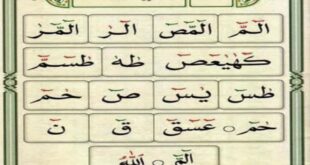 الٓمٓ الٓمٓصٓ الٓرٰ الٓمٓرٰ
كٓهٰيٰعٓصٓ طٰهٰ طٰسٓمّٓ
طٰسٓ يٰسٓ صٓ حٰمٓ
حٰمٓ ۝ عٓسٓقٓ قٓ نٓ
الٓمّٓ ۝ اللّٰهُ